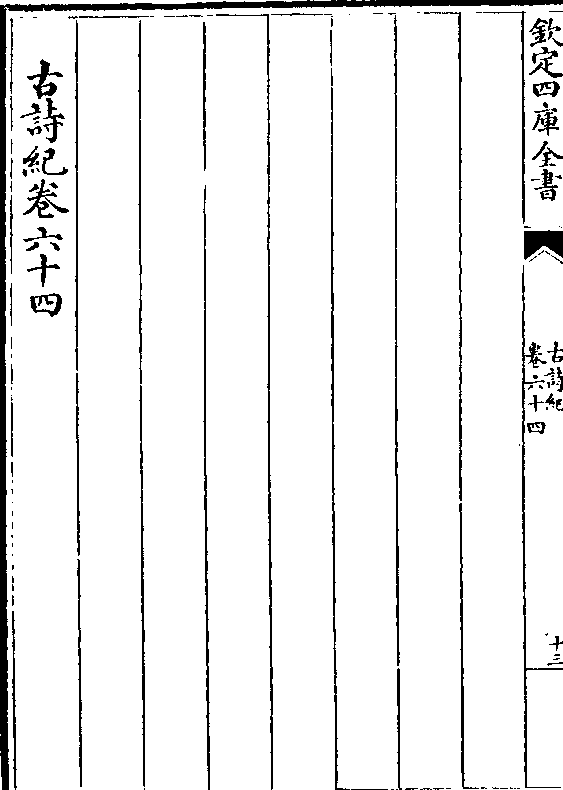 欽定四庫全書
古詩紀
卷六十四
十三
古詩紀卷六十四